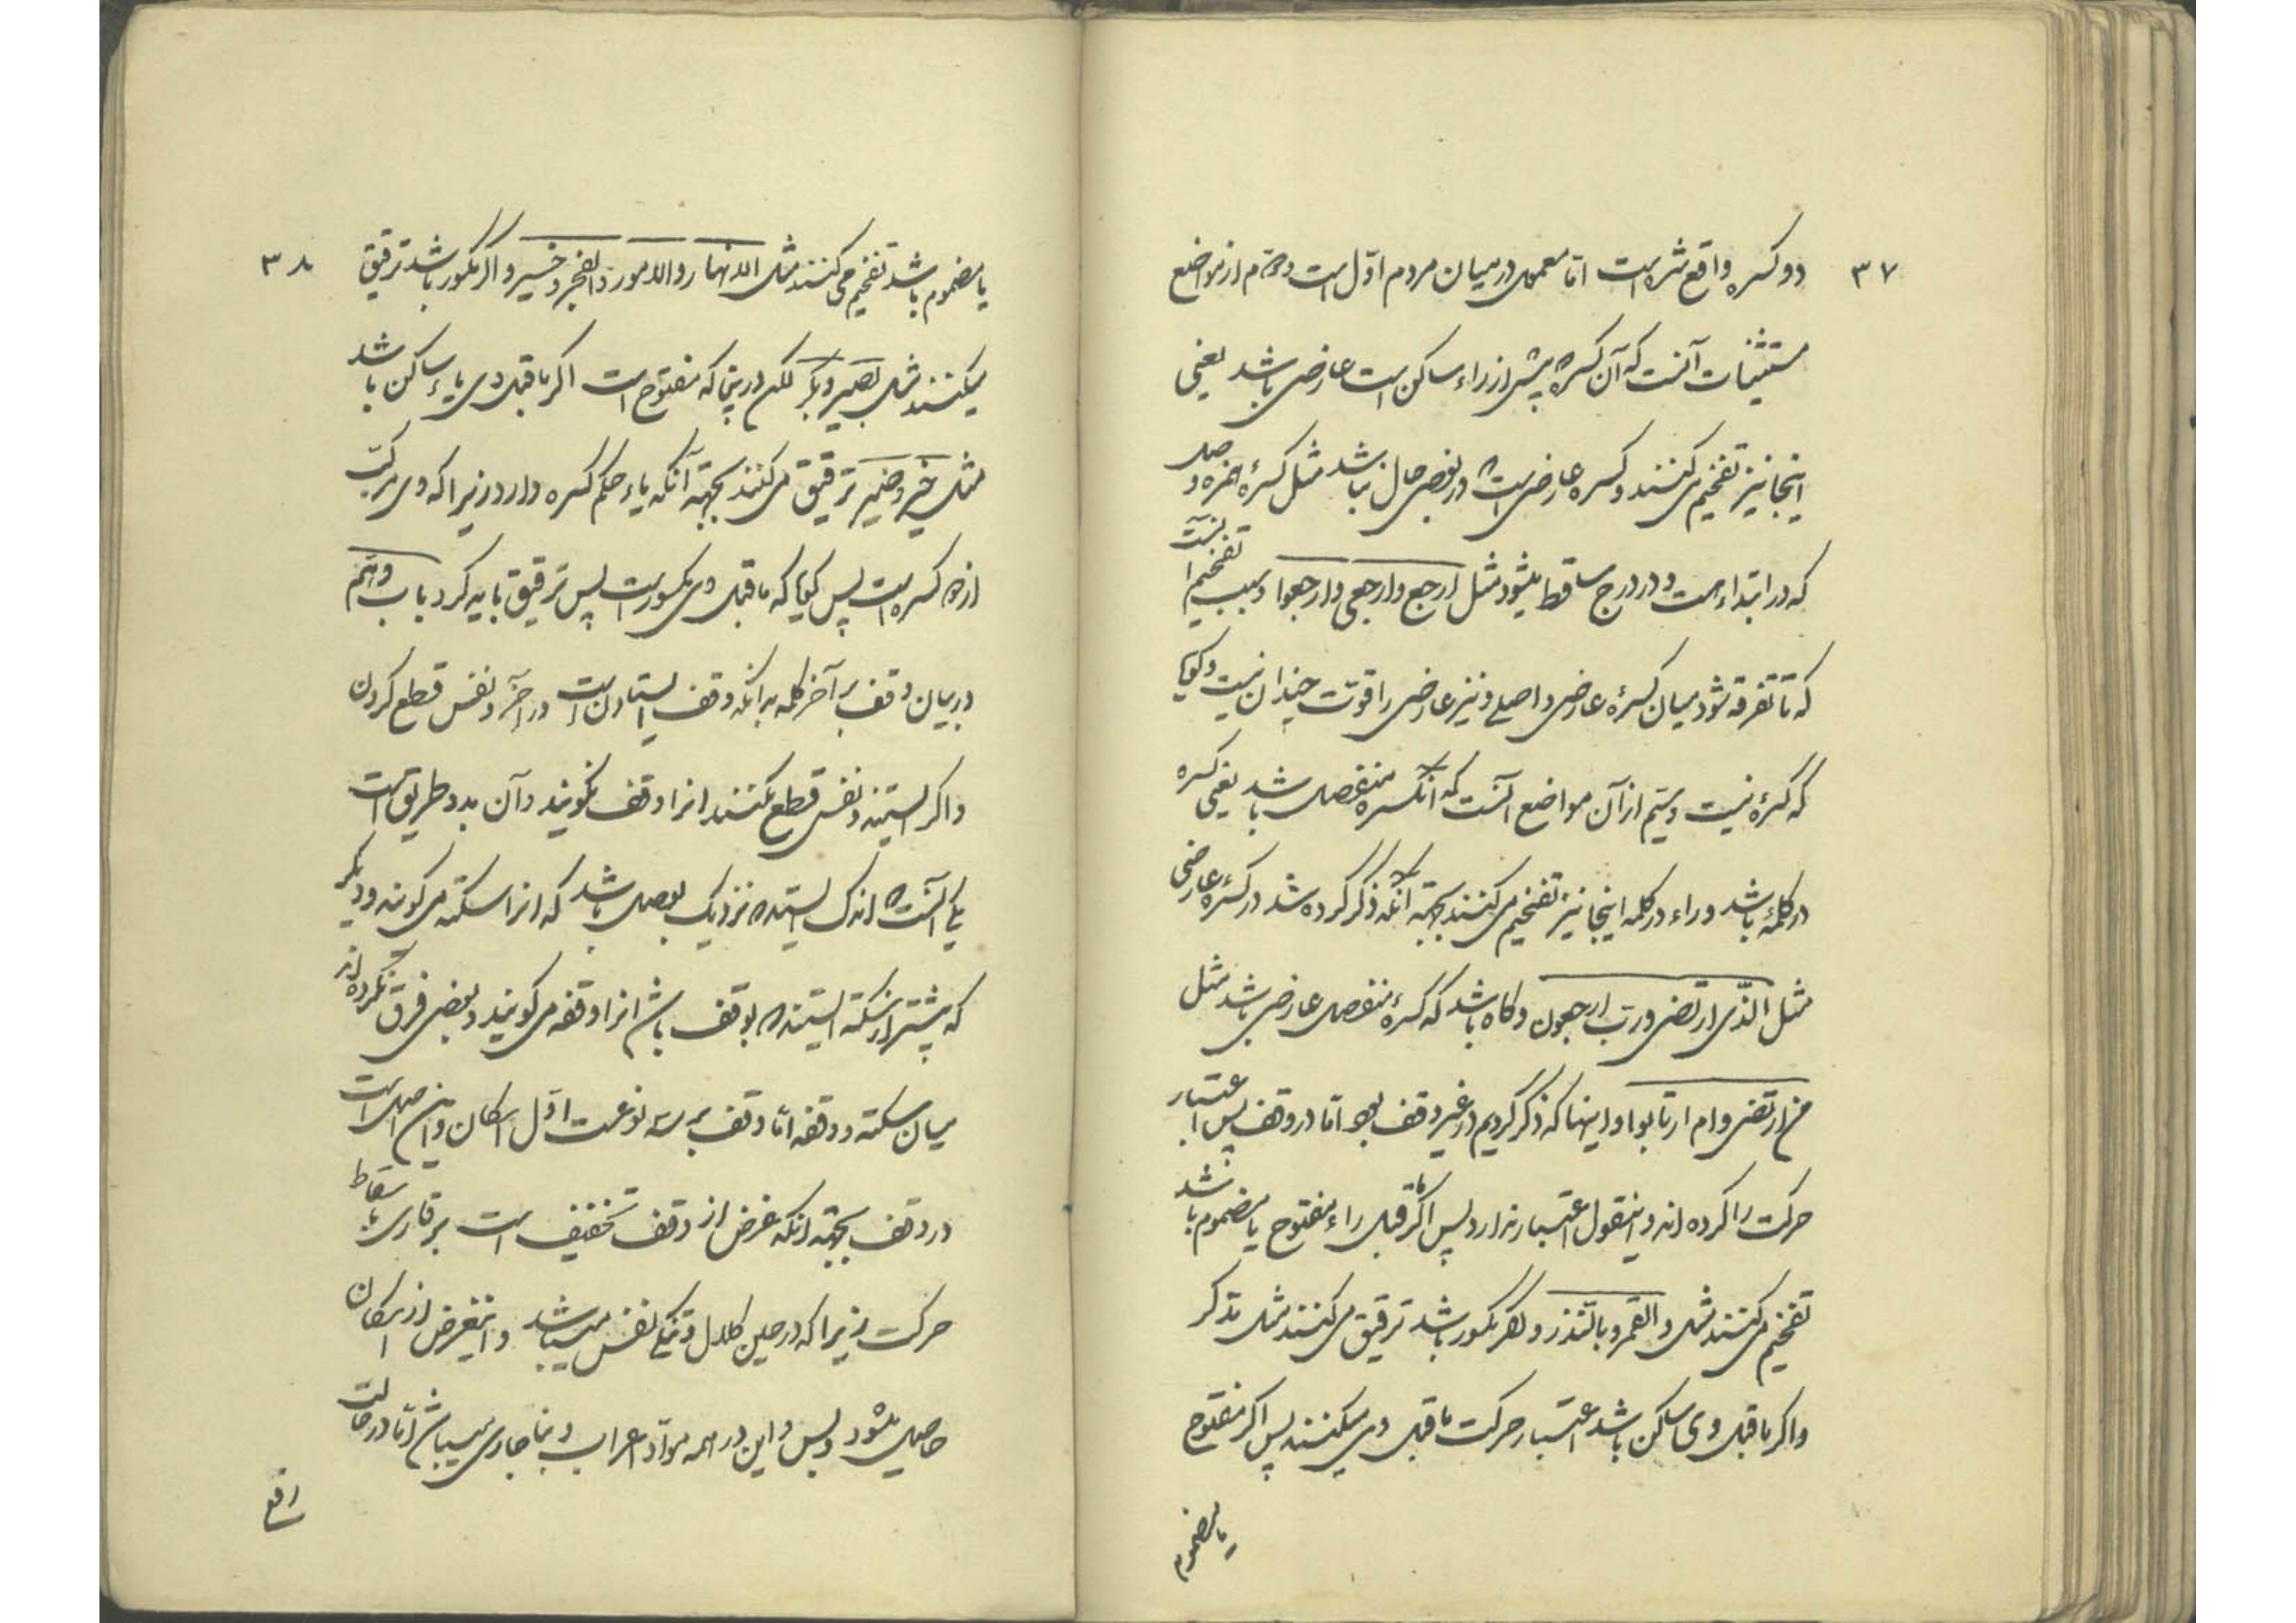 ۳۷
دو کسره واقع شده است اما معمول در میان مردم اوّل است دوم از مواضع
مستثنیات آنست که آن کسره پیش از راء ساکن است عارضی باشد یعنی
اینجا نیز تفخیم می کنند و کسره عارضی است که در بعضی حال نباشد مثل کسرهٔ همزه وصل
که در ابتداء هست و در درج ساقط میشود مثل ارجع وارجعی وارجعوا و سبب تفخیم آنست
که تا تفرقه شود میان کسرهٔ عارضی و اصلی و نیز عارضی را قوّت چندان نیست و کویا
که کسرهٔ نیست و سیّم از آن مواضع آنست که انکسره منفصل باشد یعنی کسره
در کلمهٔ باشد و راء در کلمه اینجا نیز تفخیم می کنند بجهة آنکه ذکر کرده شد در کسرهٔ عارضی
مثل الّذی ارتضی و رب ارجعون و کاه باشد که کسرهٔ منفصل عارضی باشد مثل
من ارتضی و ام ارتابوا و اینها که ذکر کردیم در غیر وقف بود اما در وقف پس اعتبار
حرکت را کرده اند و اینقول اعتبار ندارد پس اکر ماقبل راء مفتوح یا مضموم باشد
تفخیم می کنند مثل والقمر و بالنذر و اکر مکسور باشد ترقیق می کنند مثل مدکر
و اکر ماقبل وی ساکن باشد اعتبار حرکت ماقبل وی میکنند پس اکر مفتوح
یا مضموم
۳۸
یا مضموم باشد تفخیم می کنند مثل النهار والامور والفجر و خسر و اکر مکسور باشد ترقیق
میکنند مثل بصیر و بکر لکن در پنجا که مفتوح است اکر ماقبل وی یاء ساکن باشد
مثل خیر و ضیر ترقیق می کنند بجهة آنکه یاء حکم کسره دارد زیرا که وی مرکب
از دو کسره است پس کویا که ماقبل وی مکسور است پس ترقیق باید کرد باب دهم
در بیان وقف بر آخر کلمه بدانکه وقف ایستادن است در آخر و نفس قطع کردن
و اکر ایستند و نفس قطع نکنند انرا وقف نکویند و آن بدو طریق است
یکی آنست که اندک ایستد که نزدیک بوصل باشد که انرا سکته می کویند و دیکر
که بیشتر از سکته ایستد که بوقف باشد انرا وقفه می کویند و بعضی فرق نکرده اند
میان سکته و وقفه اما وقف بر سه نوعست اوّل اسکان و این اصل است
در وقف بجهة انکه غرض از وقف تخفیف است بر قاری باسقاط
حرکت زیرا که در حین کلال و تنکی نفس میباشد و اینغرض از اسکان
حاصل میشود و بس و این در همه موادّ اعراب و بنا جاری میباشد اما در حالت
رفع